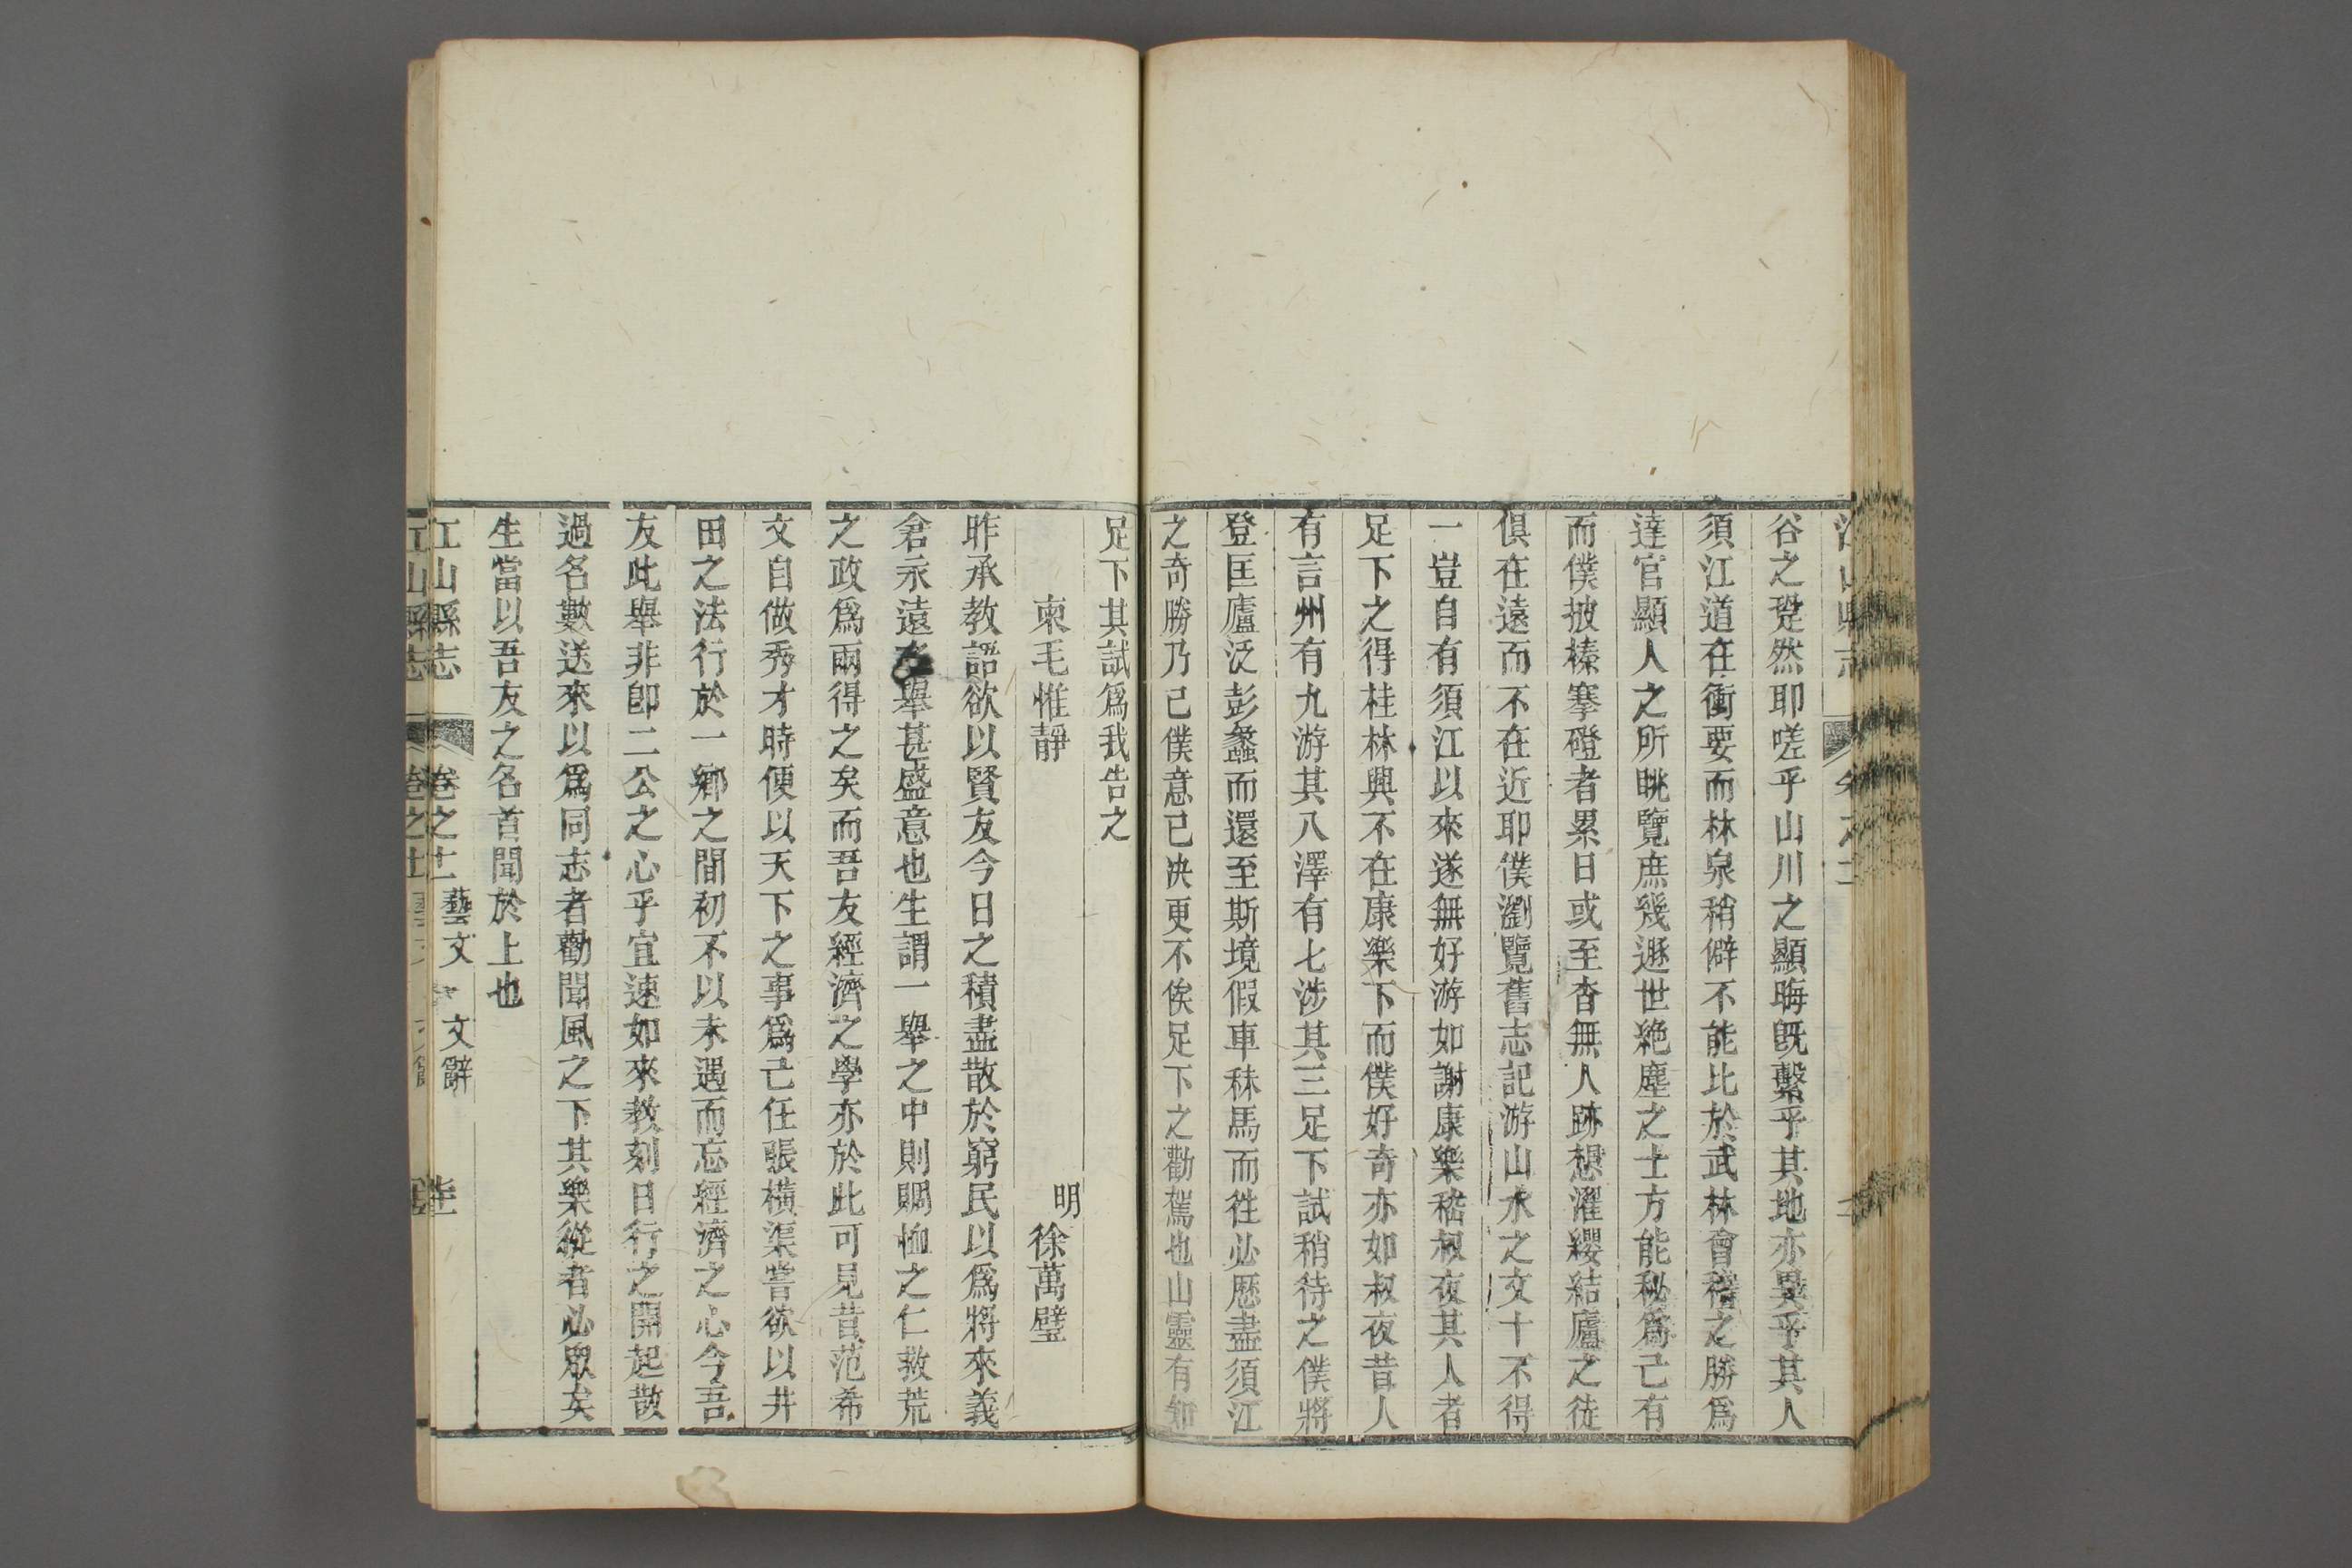 谷之跫然耶嗟乎山川之顯晦旣繫乎其地亦異乎其人
須江道在衝要而林泉稍僻不能比於武林會稽之勝爲
達官顯人之所眺覽庶幾遯世絶塵之士方能秘爲己有
而僕披榛搴磴者累日或至杳無人跡想濯纓結廬之徒
俱在遠而不在近耶僕瀏覽舊志記游山水之文十不得
一豈自有須江以來遂無好游如謝康樂嵇叔夜其人者
足下之得桂林興不在康樂下而僕好奇亦如叔夜昔人
有言州有九游其八澤有七涉其三足下試稍待之僕將
登匡廬泛彭蠡而還至斯境假車秣馬而徃必歷盡須江
之奇勝乃已僕意已决更不俟足下之勸駕也山靈有知
足下其試爲我告之
柬毛惟靜 明 徐萬璧
昨承教語欲以賢友今日之積盡散於窮民以爲將來義
倉永遠之舉甚盛意也生謂一舉之中則賙恤之仁救荒
之政爲兩得之矣而吾友經濟之學亦於此可見昔范希
文自做秀才時便以天下之事爲己任張橫渠嘗欲以井
田之法行於一鄉之間初不以未遇而忘經濟之心今吾
友此舉非卽二公之心乎宜速如來教刻日行之開起散
過名數送來以爲同志者勸聞風之下其樂從者必眾矣
生當以吾友之名首聞於上也
江山縣志 卷之十二 藝文 文辭